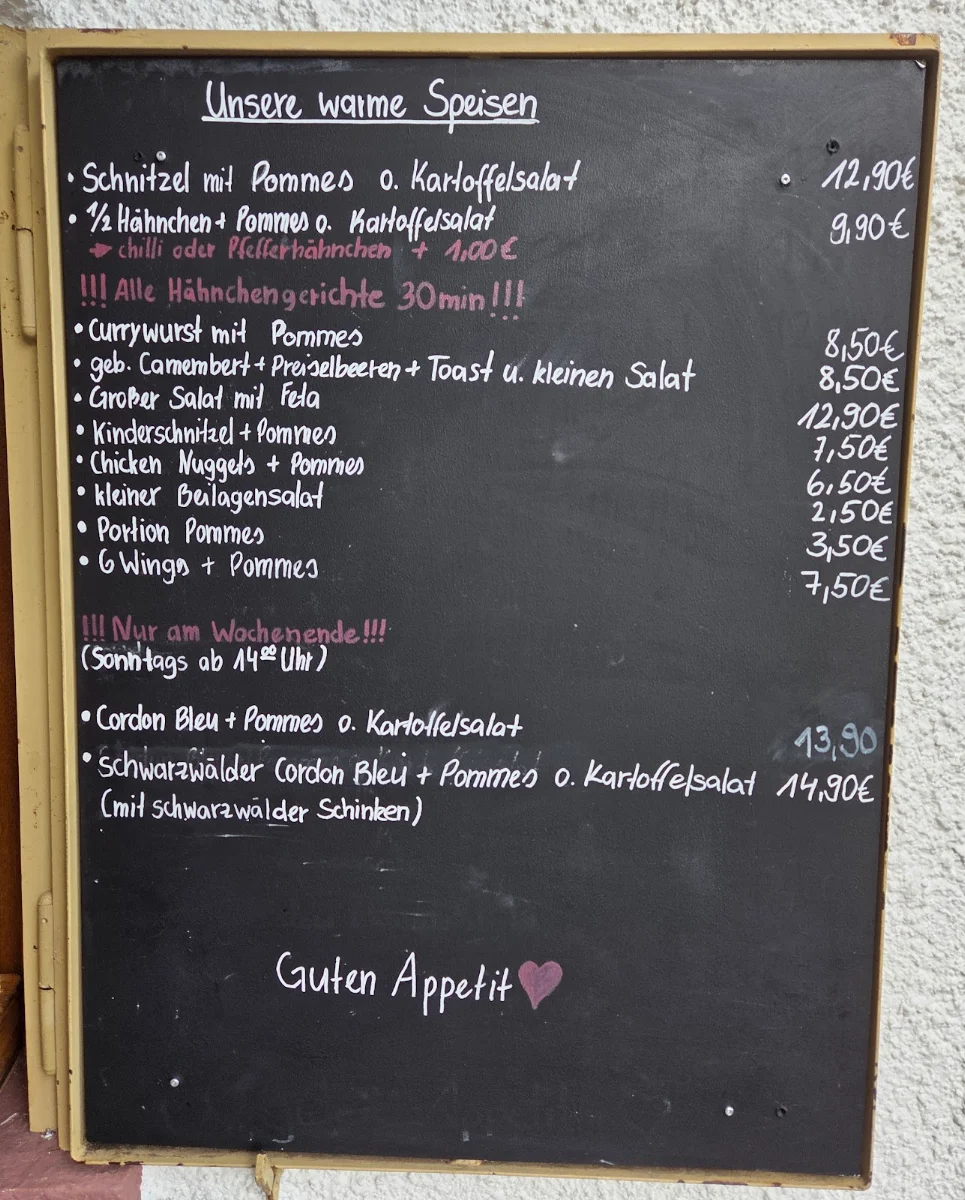 Unsere warme Speisen
• Schnitzel mit Pommes o. Kartoffelsalat 12,90€
• 1/2 Hähnchen + Pommes o. Kartoffelsalat 9,90€
→ chilli oder Pfefferhähnchen + 1,00€
!!! Alle Hähnchengerichte 30min!!!
• Currywurst mit Pommes 8,50€
• geb. Camembert + Preiselbeeren + Toast u. kleinen Salat 8,50€
• Großer Salat mit Feta 12,90€
• Kinderschnitzel + Pommes 7,50€
• Chicken Nuggets + Pommes 6,50€
• kleiner Beilagensalat 2,50€
• Portion Pommes 3,50€
• 6 Wings + Pommes 7,50€
!!! Nur am Wochenende!!!
(Sonntags ab 14⁰⁰ Uhr)
• Cordon Bleu + Pommes o. Kartoffelsalat 13,90
• Schwarzwälder Cordon Bleu + Pommes o. Kartoffelsalat 14,90€
(mit schwarzwälder Schinken)
Guten Appetit ♥